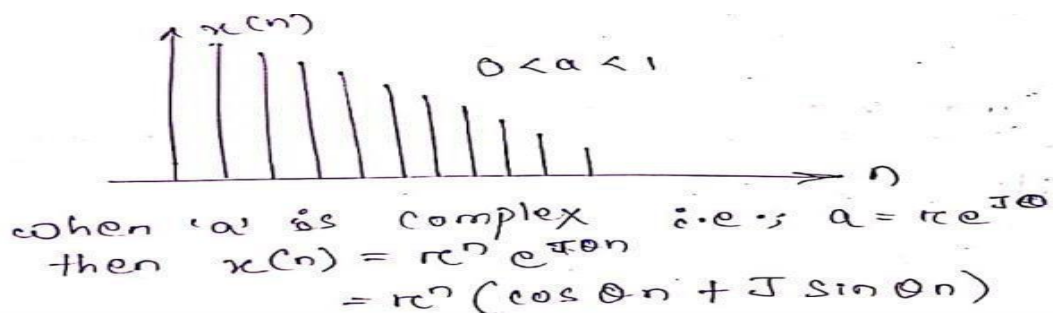 x(n)
0 < a < 1
n
when 'a' is complex i.e., a = re^{Jθ}
then x(n) = r^n e^{Jθn}
= r^n (cos θn + J sin θn)